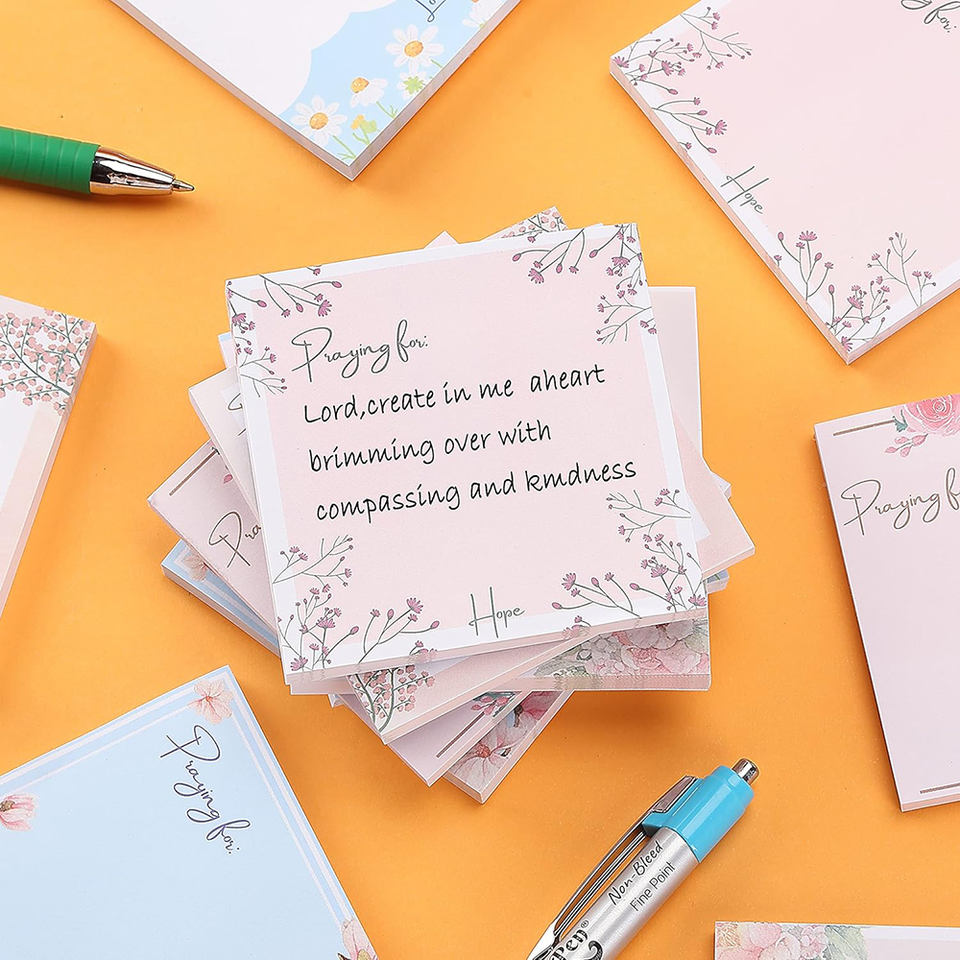 for:
Hope
Praying for:
Lord,create in me aheart
brimming over with
compassing and kmdness
Hope
Praying f
Praying for:
Non-Bleed
Fine Point
Pen®